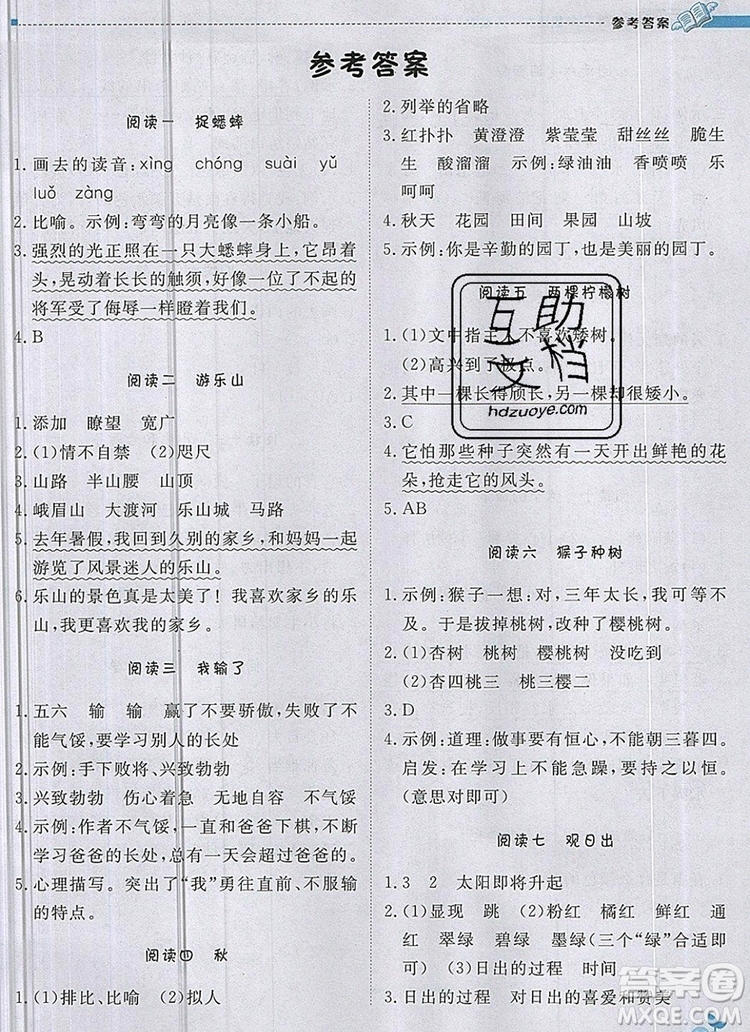 参考答案
参考答案
阅读一 捉蟋蟀
1. 画去的读音:xìng chóng suài yǔ
luǒ zàng
2. 比喻。示例:弯弯的月亮像一条小船。
3. 强烈的光正照在一只大蟋蟀身上,它昂着
头,晃动着长长的触须,好像一位了不起的
将军受了侮辱一样瞪着我们。
4. B
阅读二 游乐山
1. 添加 瞭望 宽广
2. (1)情不自禁 (2)咫尺
3. 山路 半山腰 山顶
4. 峨眉山 大渡河 乐山城 马路
5. 去年暑假,我回到久别的家乡,和妈妈一起
游览了风景迷人的乐山。
6. 乐山的景色真是太美了!我喜欢家乡的乐
山,更喜欢我的家乡。
阅读三 我输了
1. 五六 输 输 赢了不要骄傲,失败了不
能气馁,要学习别人的长处
2. 示例:手下败将、兴致勃勃
3. 兴致勃勃 伤心着急 无地自容 气馁
4. 示例:作者不气馁,一直和爸爸下棋,不断
学习爸爸的长处,后来有一天赢了爸爸。
5. 心理描写。突出了“我”勇往直前,不服输
的特点。
阅读四 秋
1. (1)排比、比喻 (2)拟人
2. 列举的省略
3. 红扑扑 黄澄澄 紫莹莹 甜丝丝 脆生
生 酸溜溜 示例:绿油油 香喷喷 乐
呵呵
4. 秋天 花园 田间 果园 山坡
5. 示例:你是辛勤的园丁,也是美丽的园丁。
阅读五 两棵柠檬树
1. (1)文中指主人不喜欢矮树。
(2)高兴到了极点。
2. 其中一棵长得颀长,另一棵却很矮小。
3. C
4. 它怕那些种子突然有一天开出鲜艳的花
朵,抢走它的风头。
5. AB
阅读六 猴子种树
1. 示例:猴子一想:对,三年太长,我可等不
及。于是拔掉桃树,改种了樱桃树。
2. (1)杏树 桃树 樱桃树
(2)杏四桃三 桃三樱二
3. D
4. 示例:道理:做事要有恒心,不能朝三暮四。
启发:在学习上不能急躁,要持之以恒。
(意思对即可)
阅读七 观日出
1. 3 2 太阳即将升起
2. (1)显现 跳 (2)粉红 橘红 鲜红 通
红 翠绿 碧绿 墨绿(三个“绿”合适即
可) (3)日出的过程 时间
3. 日出的过程 对日出的喜爱和赞美
互助
文档
hdzuoye.com
答案圈
MXQE.COM